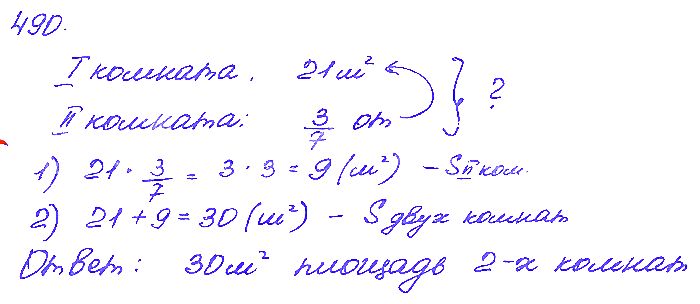 490.
I комната. 21 м² } ?
II комната: 3/7 от
1) 21 · 3/7 = 3 · 3 = 9 (м²) – S II ком.
2) 21 + 9 = 30 (м²) – S двух комнат
Ответ: 30 м² площадь 2-х комнат